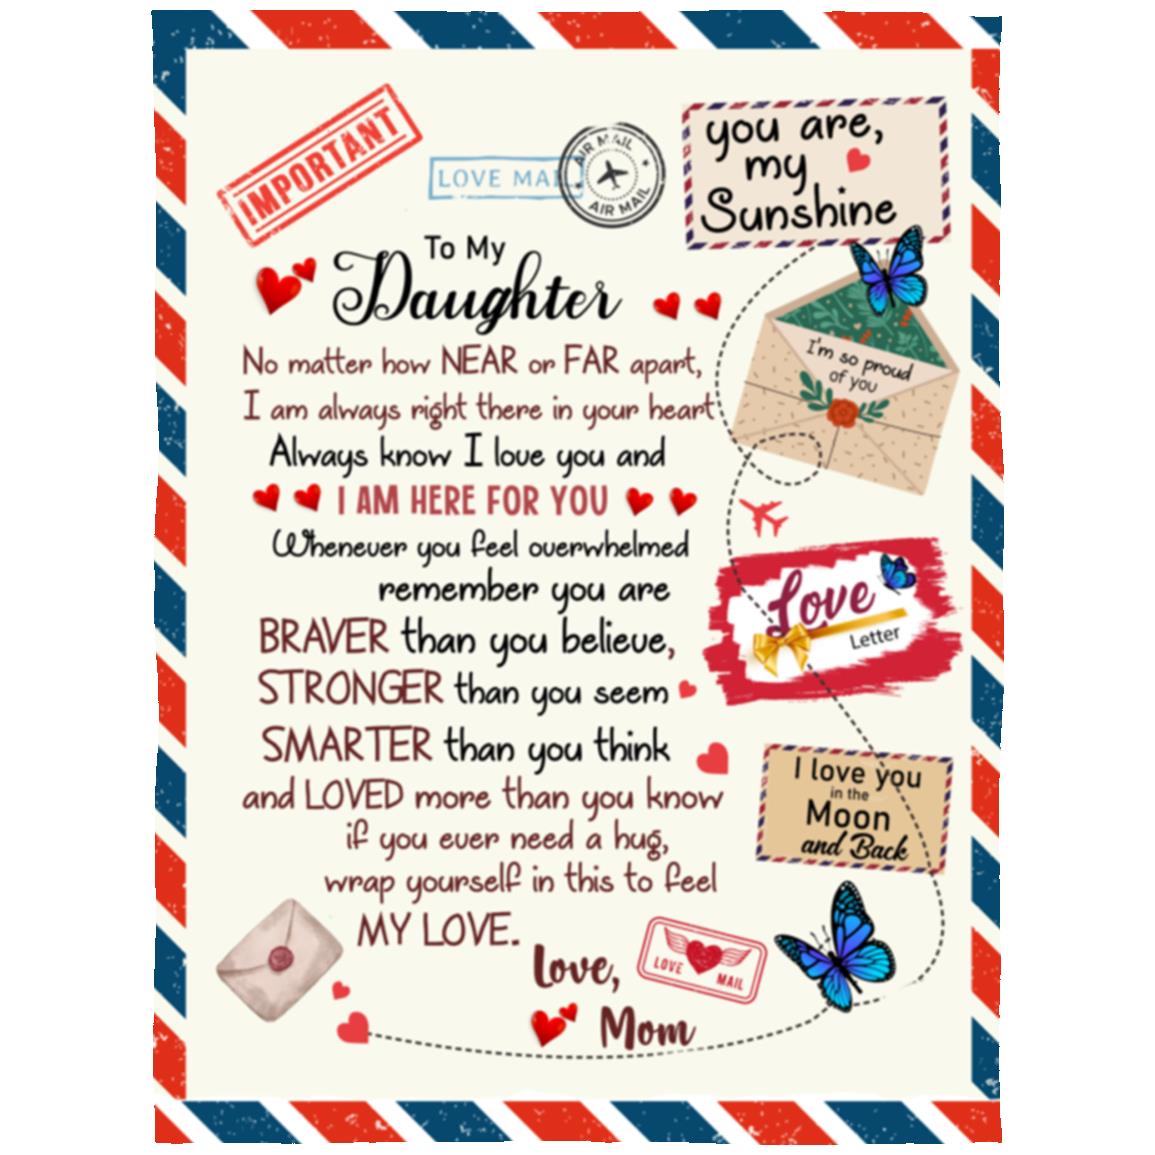 IMPORTANT
LOVE MAIL
AIR MAIL
AIR MAIL
you are,
my
Sunshine
To My
Daughter
I'm so proud
of you
No matter how NEAR or FAR apart,
I am always right there in your heart
Always know I love you and
I AM HERE FOR YOU
Whenever you feel overwhelmed
remember you are
BRAVER than you believe,
STRONGER than you seem
SMARTER than you think
and LOVED more than you know
if you ever need a hug,
wrap yourself in this to feel
MY LOVE.
Love,
Mom
Love
Letter
I love you
in the
Moon
and Back
LOVE MAIL